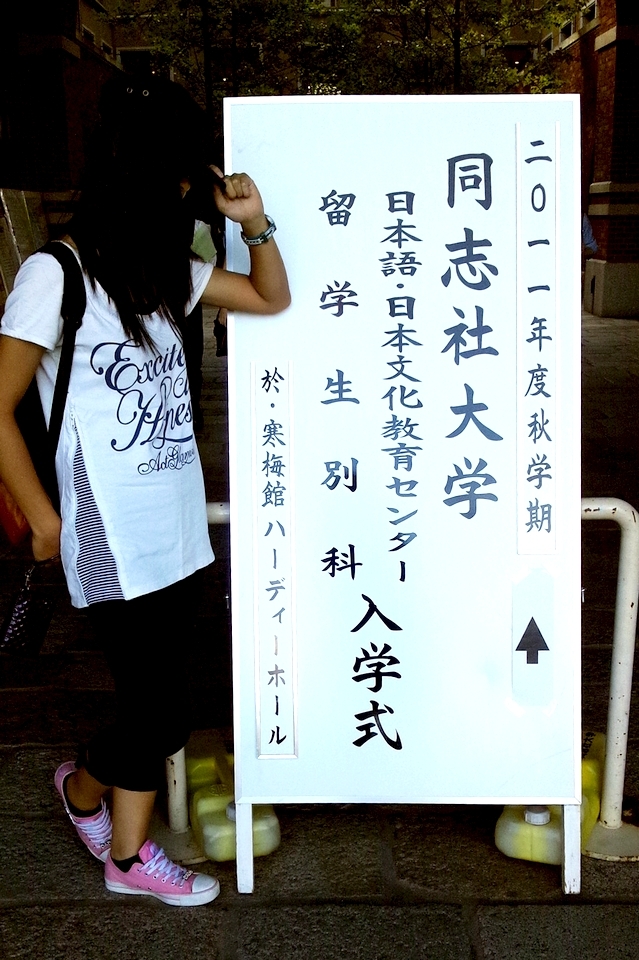 二〇一一年度秋学期
同志社大学
日本語・日本文化教育センター
留学生別科
入学式
於・寒梅館ハーディーホール
Excite